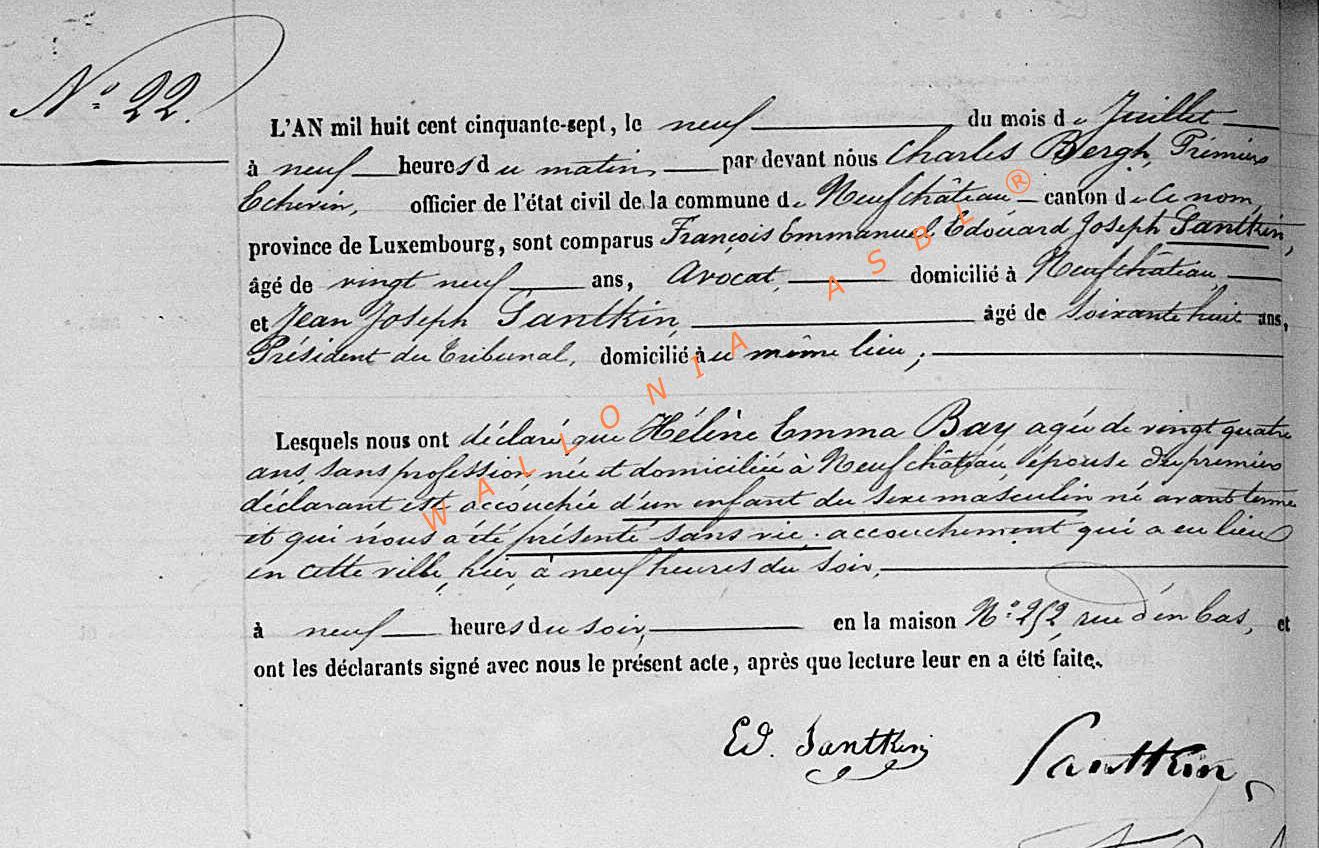 N.º 22.
L'AN mil huit cent cinquante-sept, le neuf du mois de Juillet
à neuf heures du matin, par devant nous Charles Bergh, Prémier
Echevin, officier de l'état civil de la commune de Neufchâteau canton de ce nom,
province de Luxembourg, sont comparus François Emmanuel Edouard Joseph Santkin,
âgé de vingt neuf ans, Avocat, domicilié à Neufchâteau,
et Jean Joseph Santkin, âgé de soixante huit ans,
Président du Tribunal, domicilié au même lieu;
Lesquels nous ont déclaré que Hélène Emma Bay agée de vingt quatre
ans, sans profession née et domiciliée à Neufchâteau, épouse du premier
déclarant est accouchée d'un enfant du sexe masculin né avant terme
et qui nous a été présenté sans vie. accouchement qui a eu lieu
en cette ville, hier, à neuf heures du soir,
à neuf heures du soir, en la maison N.º 252, rue d'en bas, et
ont les déclarants signé avec nous le présent acte, après que lecture leur en a été faite.
Ed. Santkin Santkin
WALLONIA ASBL ®